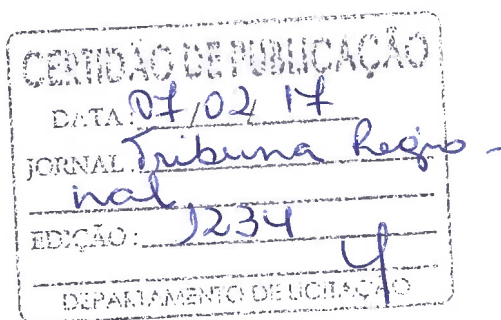 CERTIDÃO DE PUBLICAÇÃO
DATA: 07/02/17
JORNAL: Tribuna Regio-
nal,
EDIÇÃO: 1234
DEPARTAMENTO DE LICITAÇÃO